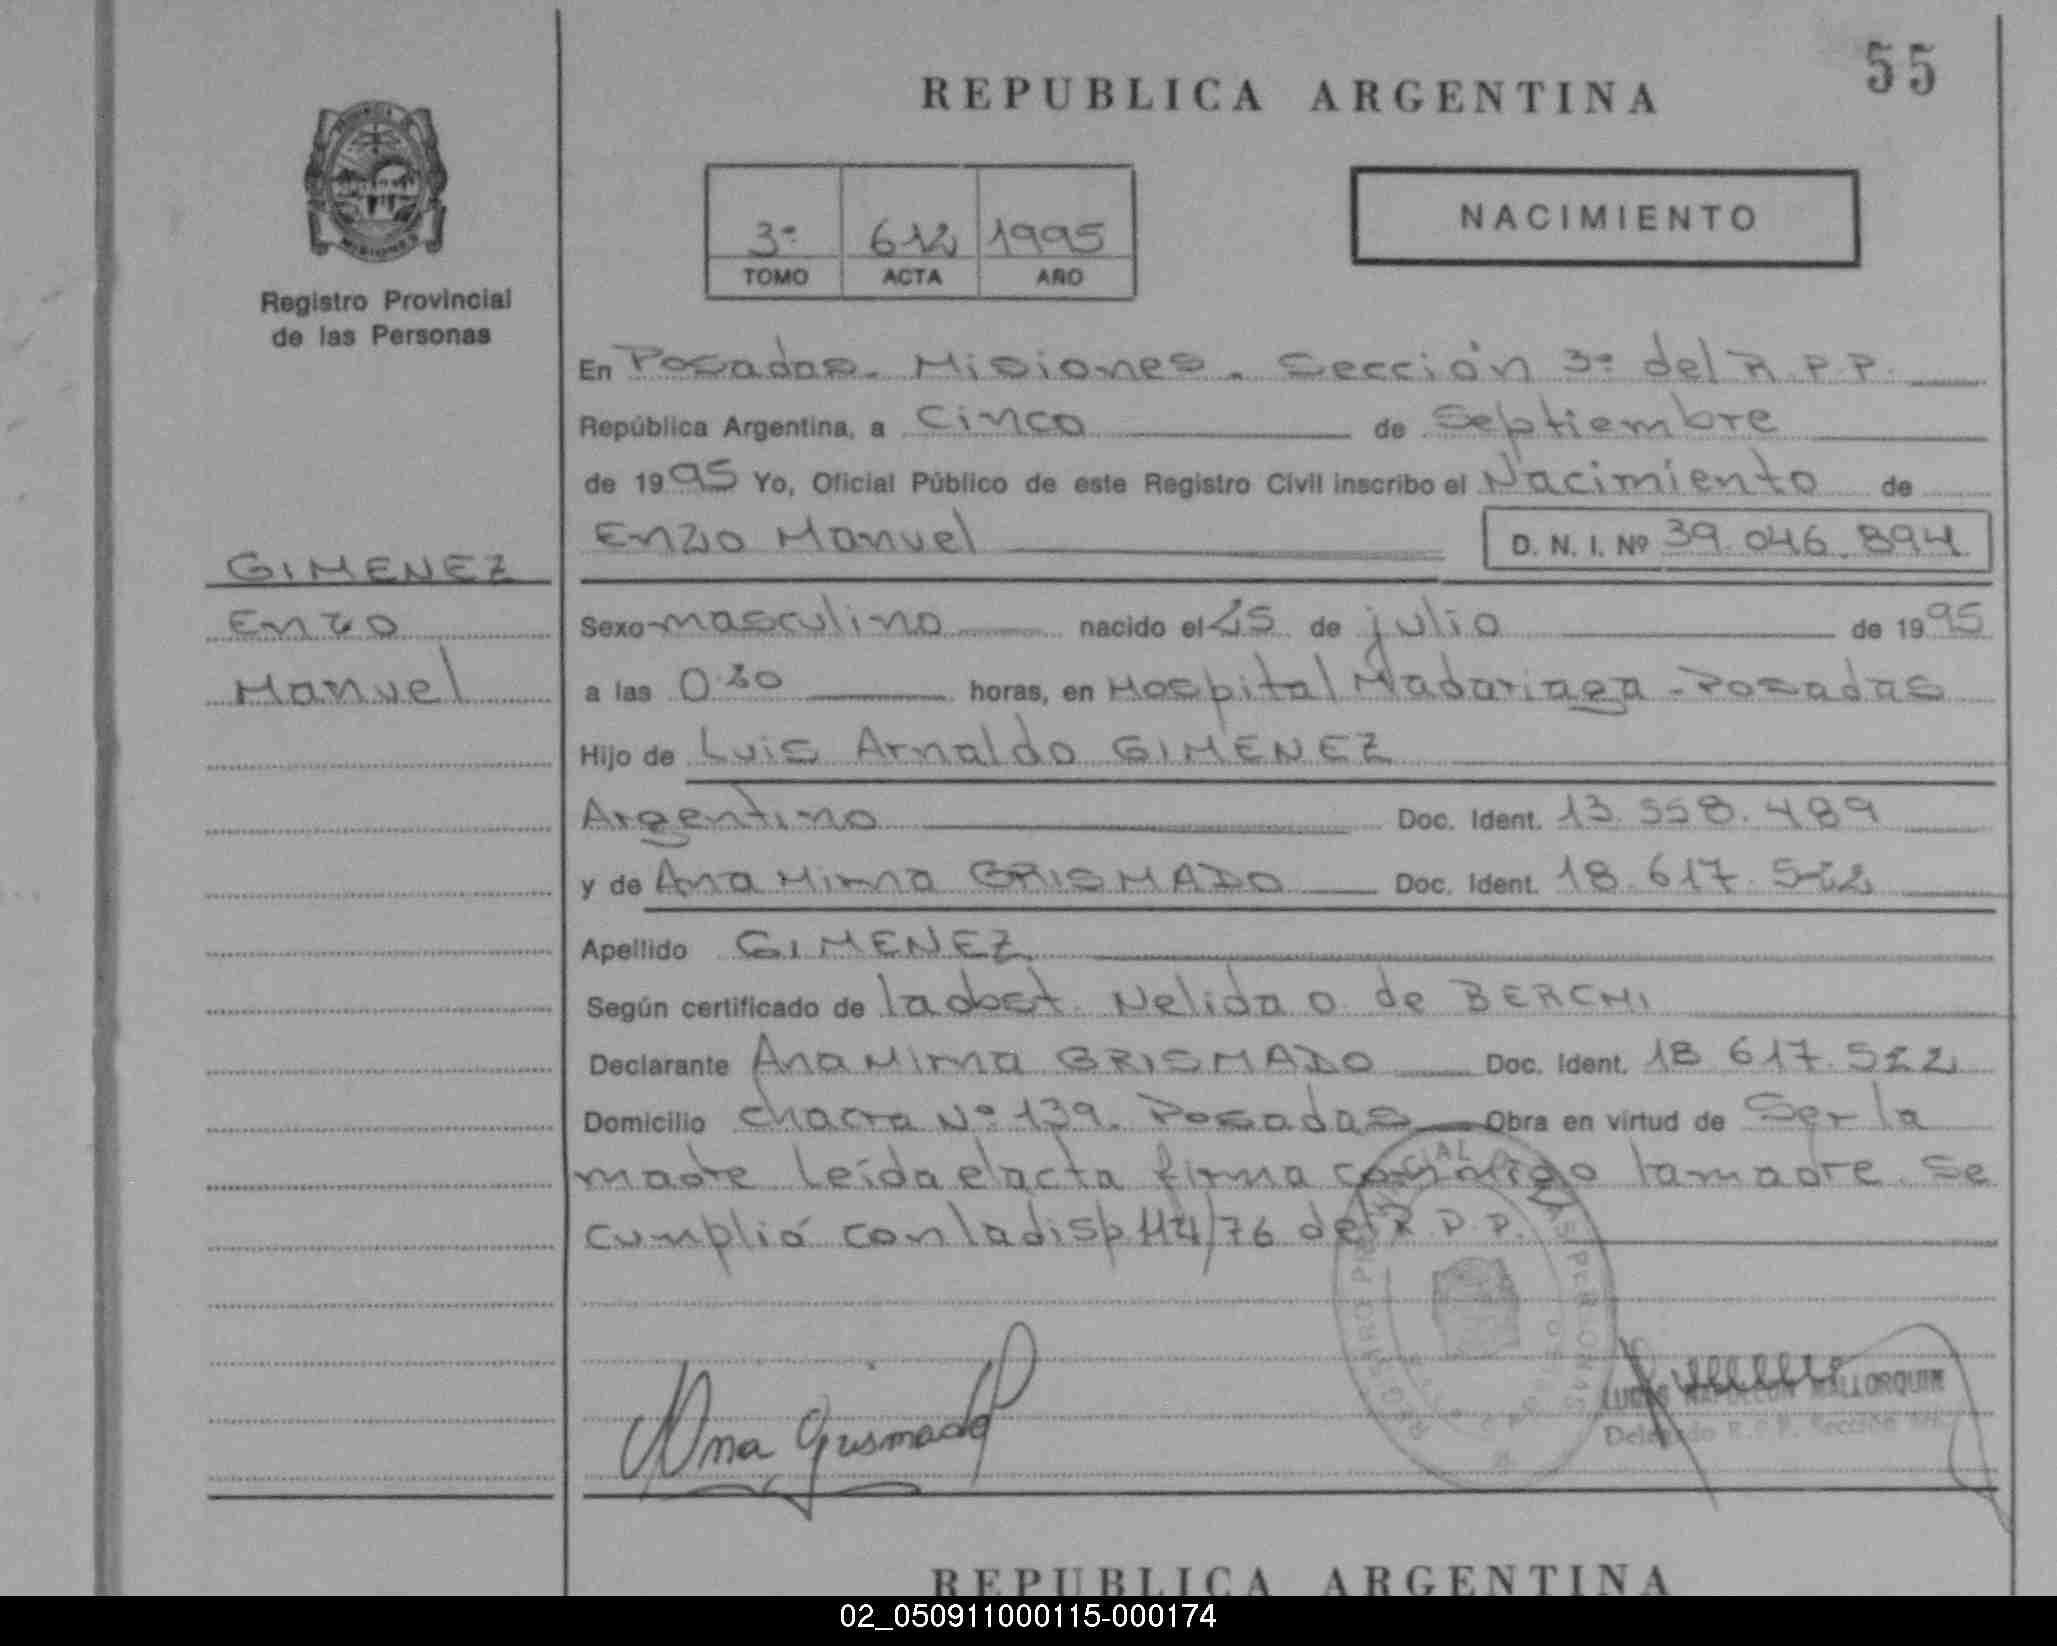 55
REPUBLICA ARGENTINA
NACIMIENTO
3º 612 1995
TOMO ACTA AÑO
Registro Provincial
de las Personas
En Posadas. Misiones. Sección 3º del R.P.P.
República Argentina, a Cinco de Septiembre
de 1995 Yo, Oficial Público de este Registro Civil inscribo el Nacimiento de
Enzo Manuel D. N. I. Nº 39.046.894
GIMENEZ
Enzo
Manuel
Sexo masculino nacido el 25 de julio de 1995
a las horas, en Hospital Madariaga - Posadas
Hijo de Luis Arnaldo GIMENEZ
Argentino Doc. Ident. 13.558.489
y de Ana Mirna GRISMADO Doc. Ident. 18.617.522
Apellido GIMENEZ
Según certificado de la obst. Nelida O. de BERCHI
Declarante Ana Mirna GRISMADO Doc. Ident. 18.617.522
Domicilio chacra Nº 139. Posadas Obra en virtud de Ser la
madre leída el acta firma conmigo la madre. Se
cumplió con la disp 114/76 del R.P.P.
Ana Grismado
MALLORQUIN
Delegado R.P.P. Sección
REPUBLICA ARGENTINA
02_050911000115-000174